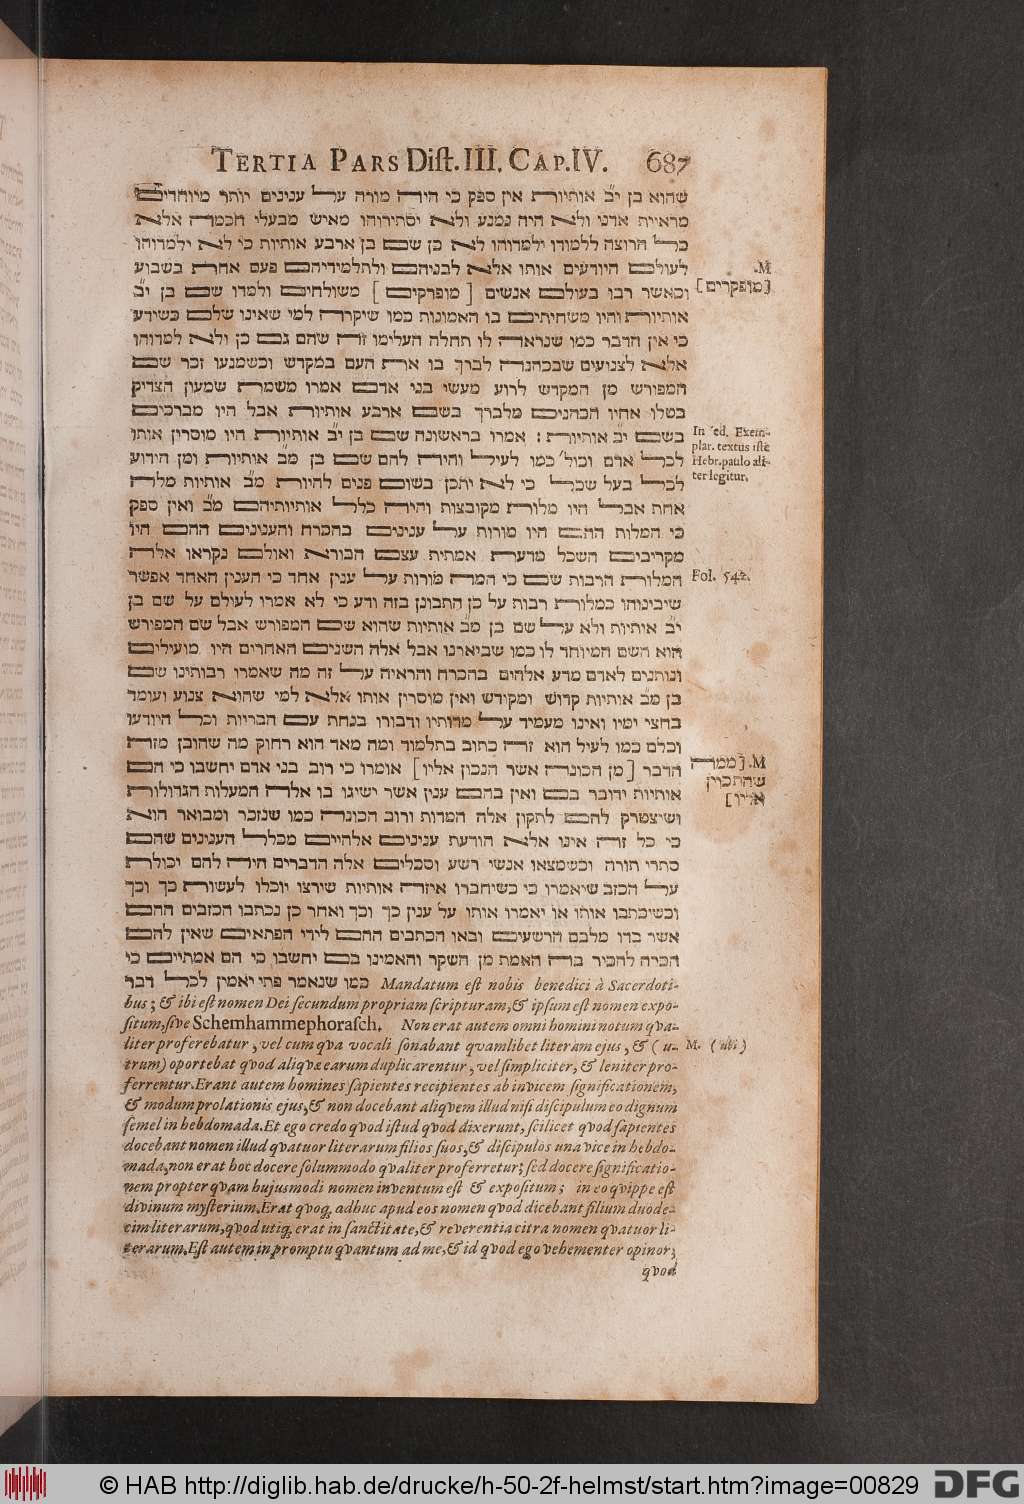 TERTIA PARS Dist. III. CAP. IV. 687
שהוא בן יב אותיות אין ספק כי היה מורה על ענינים יותר מיוחדים
מראיית אדני ולא היה נמנע ולא יסתירוהו מאיש מבעלי חכמה אלא
כל הרוצה ללמודו ילמדוהו לא כן שם בן ארבע אותיות כי לא ילמדוהו
לעולם היודעים אותו אלא לבניהם ולתלמידיהם פעם אחת בשבוע
וכאשר רבו בעולם אנשים [ מופרקים ] משולחים ולמדו שם בן י״ב
אותיות והיו משחיתים בו האמונות כמו שיקרה למי שאינו שלם כשידע
כי אין הדבר כמו שנראה לו תחלה העלימו זה שהם גם כן ולא למדוהו
אלא לצנועים שבכהנה לברך בו את העם במקדש וכשמנעו זכר שם
המפורש מן המקדש לרוע מעשי בני אדם אמרו משמת שמעון הצדיק
בטלו אחיו הכהנים מלברך בשם ארבע אותיות אבל היו מברכים
בשם י״ב אותיות : אמרו בראשונה שם בן י״ב אותיות היו מוסרין אותו
לכל אדם וכול׳ כמו לעיל והיה להם שם בן מ״ב אותיות ומן הידוע
לכל בעל שכל כי לא יתכן בשום פנים להיות מ״ב אותיות מלה
אחת אבל היו מלות מקובצות והיה כלל אותיותיהם מ״ב ואין ספק
כי המלות ההם היו מורות על ענינים בהכרח והענינים ההם היו
מקריבים השכל מדעת אמתית עצם הבורא ואולם נקראו אלה
המלות הרבות שם כי המה מורות על ענין אחד כי הענין האחד אפשר
שיבינוהו כמלות רבות על כן התבונן בזה ודע כי לא אמרו לעולם על שם בן
י״ב אותיות ולא על שם בן מ״ב אותיות שהוא שם המפורש אבל שם המפורש
הוא השם המיוחד לו כמו שביארנו אבל אלה השנים האחרים היו מועילים
ונותנים לאדם מדע אלהים בהכרח והראיה על זה מה שאמרו רבותינו שם
בן מ״ב אותיות קדוש ומקודש ואין מוסרין אותו אלא למי שהוא צנוע ועומד
בחצי ימיו ואינו מעמיד על מדותיו ודבורו בנחת עם הבריות וכל היודעו
וכלם כמו לעיל הוא זה כתוב בתלמוד ומה מאד הוא רחוק מה שהובן מזה
הדבר [ מן הכונה אשר הנכון אליו ] אומרו כי רוב בני אדם יחשבו כי הם
אותיות ידובר בם ואין בהם ענין אשר ישיגו בו אלה המעלות הגדולות
ושיצטרק להם לתקון אלה המדות ורוב הכונה כמו שנזכר ומבואר הוא
כי כל זה אינו אלא הודעת ענינים אלהיים מכלל הענינים שהם
סתרי תורה וכשמצאו אנשי רשע וסכלים אלה הדברים היה להם יכולת
על הכזב שיאמרו כי כשיחברו איזה אותיות שירצו יוכלו לעשות כך וכך
וכשיכתבו אותו או יאמרו אותו על ענין כך וכך ואחר כן נכתבו הכזבים ההם
אשר בדו מלבם הרשעים ובאו הכתבים ההם לידי הפתאים שאין להם
הכיה להכיר בה האמת מן השקר והאמינו בם יחשבו כי הם אמתיים כי
כמו שנאמר פתי יאמין לכל דבר Mandatum est nobis benedici à Sacerdoti-
bus; & ibi est nomen Dei secundum propriam scripturam, & ipsum est nomen expo-
situm, sive Schemhammephorasch. Non erat autem omni homini notum qva-
liter proferebatur, vel cum qva vocali sonabant qvamlibet literam ejus, & (u-
trum) oportebat qvod aliqvæ earum duplicarentur, vel simpliciter, & leniter pro-
ferrentur. Erant autem homines sapientes recipientes ab invicem significationem,
& modum prolationis ejus, & non docebant aliqvem illud nisi discipulum eo dignum
semel in hebdomada. Et ego credo qvod istud qvod dixerunt, scilicet qvod sapientes
docebant nomen illud qvatuor literarum filios suos, & discipulos una vice in hebdo-
mada, non erat hoc docere solummodo qvaliter proferretur; sed docere significatio-
nem propter qvam hujusmodi nomen inventum est & expositum; in eo qvippe est
divinum mysterium. Erat qvoq; adhuc apud eos nomen qvod dicebant filium duode-
cim literarum, qvod utiq; erat in sanctitate, & reverentia citra nomen qvatuor li-
terarum. Est autem in promptu qvantum ad me, & id qvod ego vehementer opinor;
qvod
M.
[מופקרים]
In ed. Exem-
plar. textus iste
Hebr. paulo ali-
ter legitur.
Fol. 542.
M. [ממה
שהתכוין
אליו]
M. (ubi)
© HAB http://diglib.hab.de/drucke/h-50-2f-helmst/start.htm?image=00829 DFG